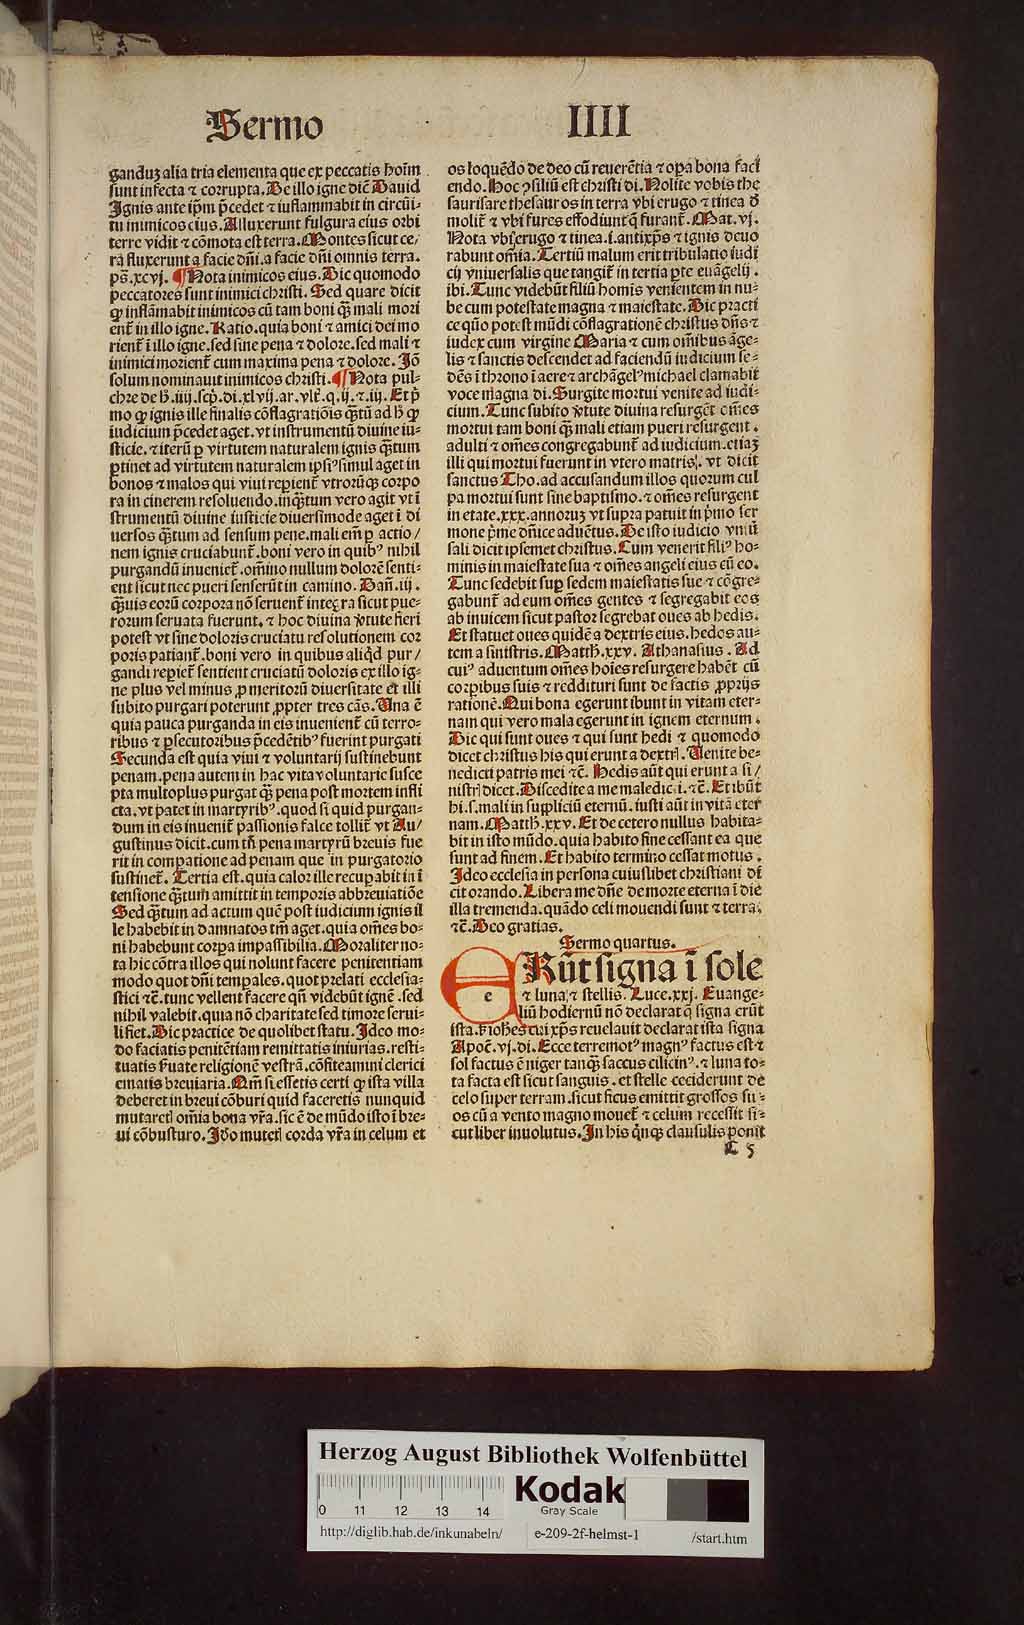 Sermo IIII
ganduz alia tria elementa que ex peccatis hoīm
sunt infecta ⁊ corrupta. De illo igne dic̄ Dauid
Ignis ante ip̄m p̄cedet ⁊ inflammabit in circūi-
tu inimicos eius. Alluxerunt fulgura eius orbi
terre vidit ⁊ cōmota est terra. Montes sicut ce/
ra fluxerunt a facie dn̄i. a facie dn̄i omnis terra.
ps̄. xcvj. ¶ Nota inimicos eius. Dic quomodo
peccatores sunt inimici christi. Sed quare dicit
ꝙ inflāmabit inimicos cū tam boni q̄ꝫ mali mori
ent̄ in illo igne. Ratio. quia boni ⁊ amici dei mo
rient̄ ī illo igne. sed sine pena ⁊ dolore. sed mali ⁊
inimici morient̄ cum maxima pena ⁊ dolore. Iō
solum nominauit inimicos christi. ¶ Nota pul-
chre de h̄. iiij. scp̄. di. xlvij. ar. vlt̄. q. ij. ⁊. iij. Et p̄
mo ꝙ ignis ille finalis cōflagratiōis q̄ꝫtū ad h̄ ꝙ
iudicium p̄cedet aget. vt instrumentū diuine iu-
sticie. ⁊ iterū ꝑ virtutem naturalem ignis q̄ꝫtum
ꝑtinet ad virtutem naturalem ipsiꝰ simul aget in
bonos ⁊ malos qui viui repient̄ vtrorūqꝫ corpo
ra in cinerem resoluendo. inq̄ꝫtum vero agit vt ī
strumentū diuine iusticie diuersimode aget ī di
uersos q̄ꝫtum ad sensum pene. mali em̄ ꝑ actio/
nem ignis cruciabunt̄. boni vero in quibꝰ nihil
purgandū inueniet̄. om̄ino nullum dolorē senti-
ent sicut nec pueri senserūt in camino. Dan̄. iij.
q̄ꝫuis eorū corpora nō seruent̄ integra sicut pue-
rorum seruata fuerunt. ⁊ hoc diuina v̄tute fieri
potest vt sine doloris cruciatu resolutionem cor
poris patiant̄. boni vero in quibus aliq̄d pur/
gandi repiet̄ sentient cruciatū doloris ex illo ig-
ne plus vel minus ꝓ meritorū diuersitate et illi
subito purgari poterunt ꝓpter tres cās. Una ē
quia pauca purganda in eis inuenient̄ cū terro-
ribus ⁊ ꝑsecutoribus p̄cedētibꝰ fuerint purgati
Secunda est quia viui ⁊ voluntarij sustinebunt
penam. pena autem in hac vita voluntarie susce
pta multoplus purgat q̄ꝫ pena post mortem infli
cta. vt patet in martyribꝰ. quod si quid purgan-
dum in eis inuenit̄ passionis falce tollit̄ vt Au/
gustinus dicit. cum tn̄ pena martyrū breuis fue
rit in compatione ad penam que in purgatorio
sustinet̄. Tertia est. quia calor ille recuꝑabit in ī
tensione q̄ꝫtum amittit in temporis abbreuiatiōe
Sed q̄ꝫtum ad actum quē post iudicium ignis il
le habebit in damnatos tm̄ aget. quia om̄es bo-
ni habebunt corpa impassibilia. Moraliter no-
ta hic cōtra illos qui nolunt facere penitentiam
modo quot dn̄i tempales. quot prelati ecclesia-
stici ⁊c̄. tunc vellent facere qn̄ videbūt ignē. sed
nihil valebit. quia nō charitate sed timore serui-
li fiet. Dic practice de quolibet statu. Ideo mo-
do faciatis penitētiam remittatis iniurias. resti-
tuatis ẜuate religionē vestrā. cōfiteamini clerici
ematis breuiaria. Nā si essetis certi ꝙ ista villa
deberet in breui cōburi quid faceretis nunquid
mutaretꝭ om̄ia bona vr̄a. sic ē de mūdo isto ī bre-
ui cōbusturo. Iō mutetꝭ corda vr̄a in celum et
os loquēdo de deo cū reuerētia ⁊ oꝑa bona faci
endo. Hoc ꝯsiliū est christi di. Nolite vobis the
saurisare thesauros in terra vbi erugo ⁊ tinea d̄
molit̄ ⁊ vbi fures effodiunt q̄ furant̄. Mat. vj.
Nota vbi erugo ⁊ tinea. i. antixp̄s ⁊ ignis deuo
rabunt om̄ia. Tertiū malum erit tribulatio iudi
cij vniuersalis que tangit̄ in tertia ꝑte euāgelij.
ibi. Tunc videbūt filiū homis venientem in nu-
be cum potestate magna ⁊ maiestate. Dic practi
ce quo potest mūdi cōflagrationē christus dn̄s ⁊
iudex cum virgine Maria ⁊ cum om̄ibus āge-
lis ⁊ sanctis descendet ad faciendū iudicium se-
dēs ī throno ī aere ⁊ archāgelꝰ michael clamabit
voce magna di. Surgite mortui venite ad iudi-
cium. Tunc subito v̄tute diuina resurgēt om̄es
mortui tam boni q̄ꝫ mali etiam pueri resurgent.
adulti ⁊ om̄es congregabunt̄ ad iudicium. etiaꝫ
illi qui mortui fuerunt in vtero matrisꝭ. vt dicit
sanctus Tho. ad accusandum illos quorum cul
pa mortui sunt sine baptismo. ⁊ om̄es resurgent
in etate. xxx. annoruꝫ vt supra patuit in p̄mo ser
mone p̄me dn̄ice aduētus. De isto iudicio vniū
sali dicit ipsemet christus. Cum venerit filiꝰ ho-
minis in maiestate sua ⁊ om̄es angeli eius cū eo.
Tunc sedebit suꝑ sedem maiestatis sue ⁊ cōgre-
gabunt̄ ad eum om̄es gentes ⁊ segregabit eos
ab inuicem sicut pastor segregabat oues ab hedis.
Et statuet oues quidē a dextris eius. hedos au-
tem a sinistris. Matth. xxv. Athanasius. Ad
cuiꝰ aduentum om̄es hoīes resurgere habēt cū
corpibus suis ⁊ reddituri sunt de factis ꝓprijs
rationē. Qui bona egerunt ibunt in vitam eter-
nam qui vero mala egerunt in ignem eternum.
Dic qui sunt oues ⁊ qui sunt hedi ⁊ quomodo
dicet christus his qui erunt a dextrꝭ. Uenite be-
nedicti patris mei ⁊c̄. Hedis aūt qui erunt a si/
nistrꝭ dicet. Discedite a me maledicti. ⁊c̄. Et ibūt
hi. s. mali in supliciū eternū. iusti aūt in vitā eter
nam. Matth. xxv. Et de cetero nullus habita-
bit in isto mūdo. quia habito fine cessant ea que
sunt ad finem. Et habito termino cessat motus.
Ideo ecclesia in persona cuiuslibet christiani di
cit orando. Libera me dn̄e de morte eterna ī die
illa tremenda. quādo celi mouendi sunt ⁊ terra.
⁊c̄. Deo gratias.
Sermo quartus.
ERūt signa ī sole
⁊ luna ⁊ stellis. Luce. xxj. Euange-
liū hodiernū nō declarat q̄ signa erūt
ista. ẜ iohēs cui xp̄s reuelauit declarat ista signa
Apoc̄. vj. di. Ecce terremotꝰ magnꝰ factus est ⁊
sol factus ē niger tanq̄ꝫ saccus cilicinꝰ. ⁊ luna to-
ta facta est sicut sanguis. et stelle ceciderunt de
celo super terram. sicut ficus emittit grossos su-
os cū a vento magno mouet̄ ⁊ celum recessit si-
cut liber inuolutus. In his q̄nqꝫ clausulis ponit
C 5
Herzog August Bibliothek Wolfenbüttel
0 11 12 13 14
Kodak
Gray Scale
http://diglib.hab.de/inkunabeln/
e-209-2f-helmst-1
/start.htm